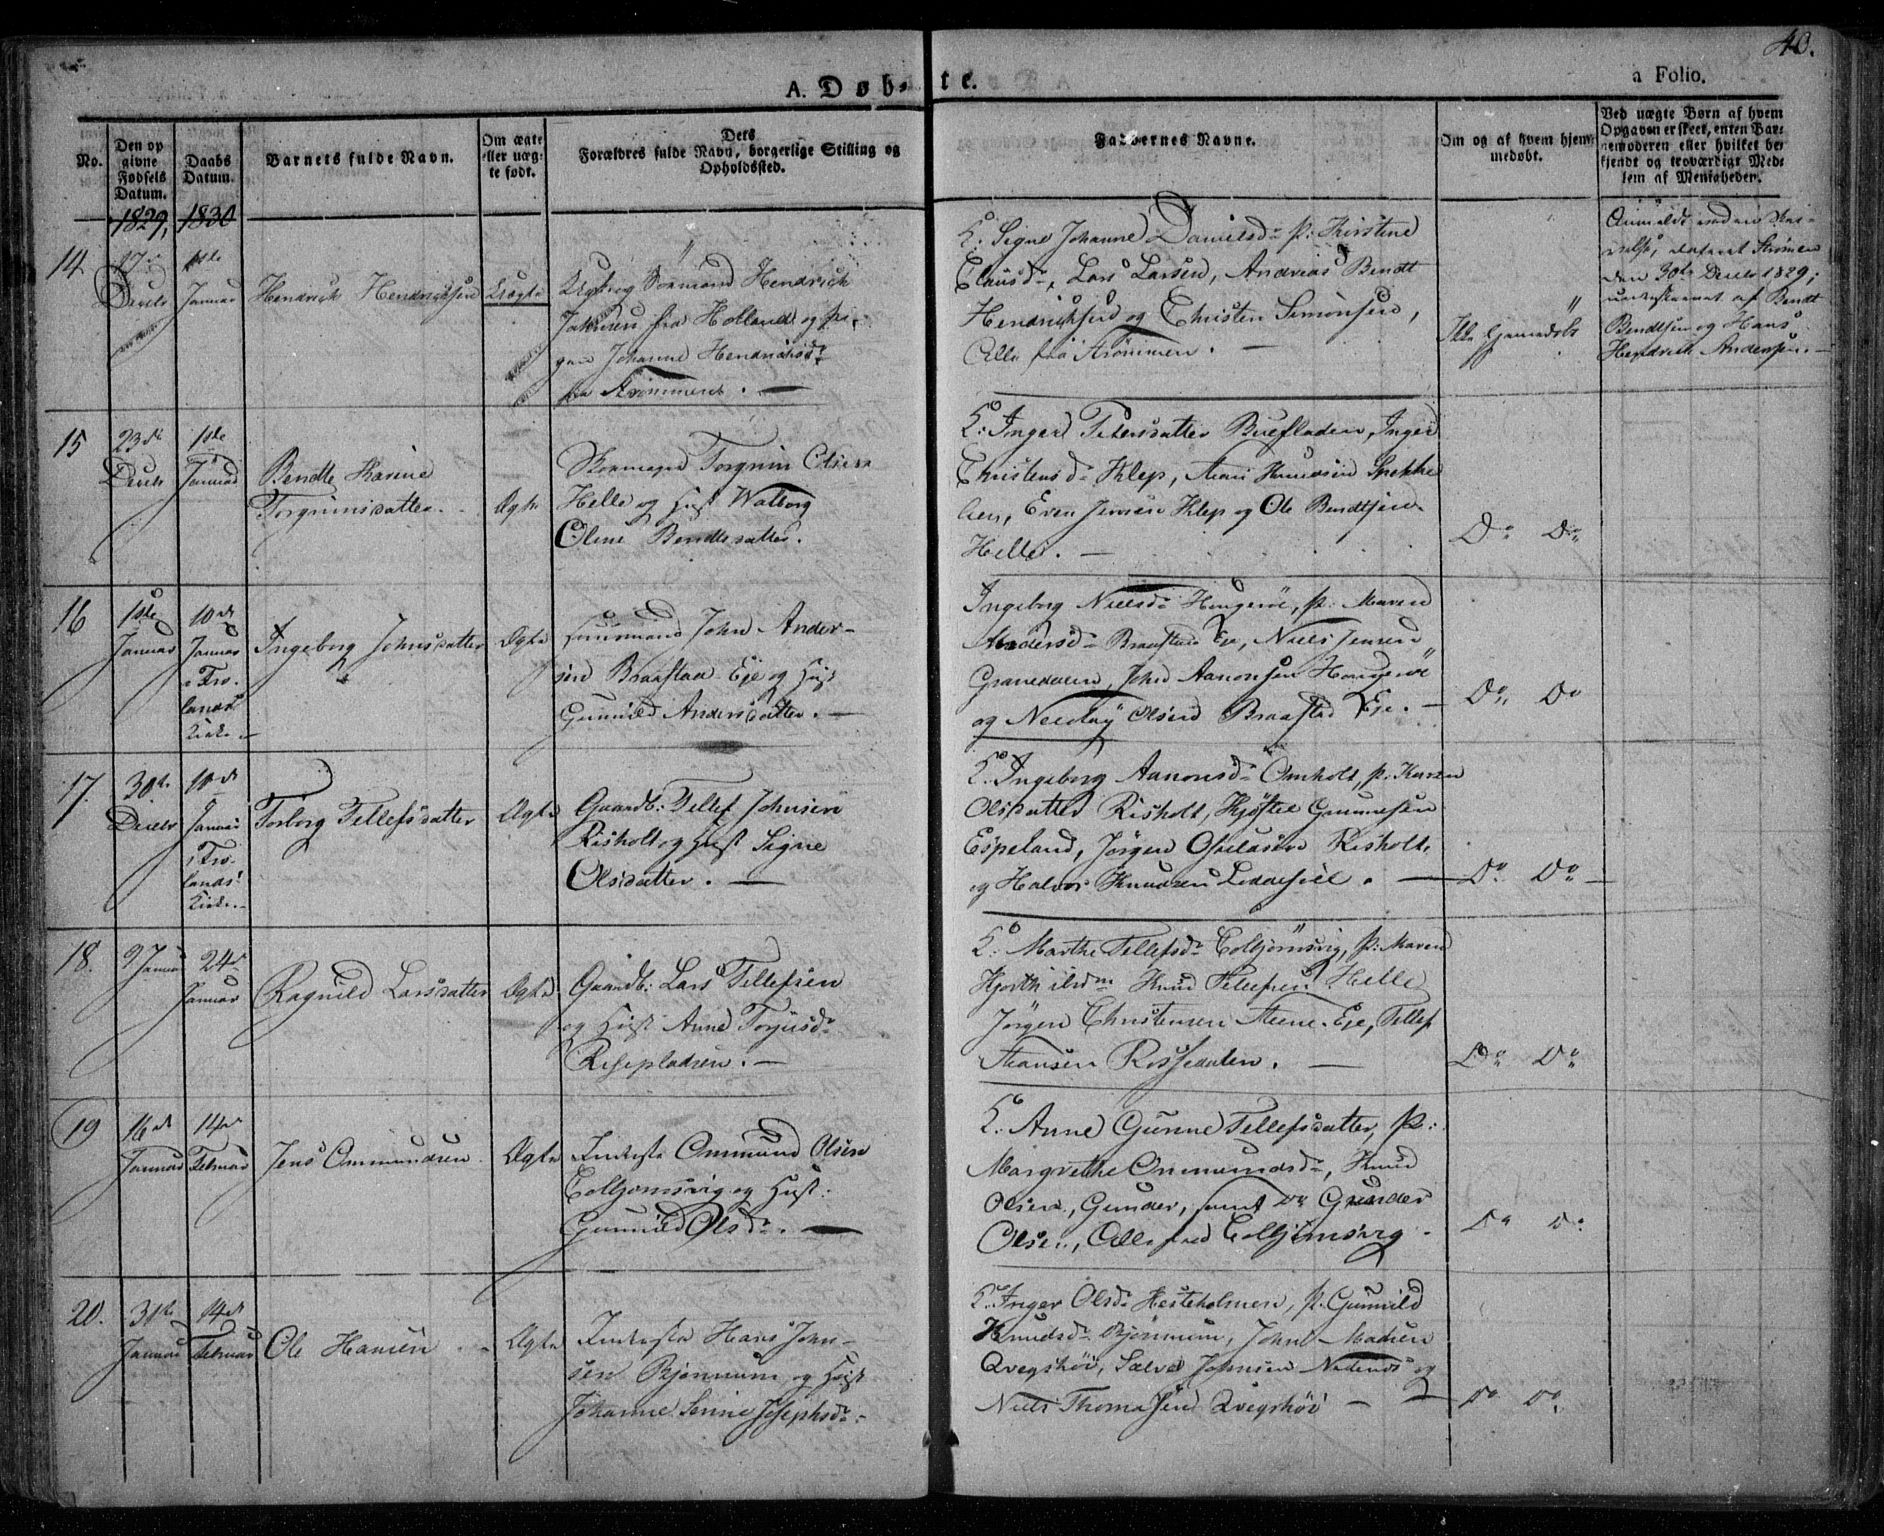 40.
A. Døbte.
a Folio.
No.
Den op
givne
Fødsels
Datum.
Daabs
Datum.
Barnets fulde Navn.
Om ægte
eller uæg-
te født.
Dets
Forældres fulde Navn, borgerlige Stilling og
Opholdssted.
Faddernes Navne.
Om og af hvem hjem-
medøbt.
Ved uægte Børn af hvem
Opgaven er skeet, enten Bar-
nemoderen eller hvilket be-
kjendt og troværdigt Med-
lem af Menigheden.
1829, 1830
14
17de
Decbr
1ste
Januar
Hendrich Hendrichsen
Uægte
Sømand Hendrich
Johnsen fra Holland og pi-
gen Johanne Hendrichsdr
fra Strømmene. —
K: Signe Johanne Danielsdr p: Kirstine
Clausdr, Lars Larsen, Andreas Bendt
Hendrichsen og Christen Simonsen,
Alle fra Strømmen. —
Ikke hjemmedøbt
Anmeldt ved en Ski-
velse, dateret Strømen
den 30te Decbr 1829,
underskrevet af Bendt
Bendtsen og Hans
Hendrich Andersen. —
15
23de
Decbr
1ste
Januar
Bendte Karine
Torgrimsdatter.
Ægte
Skomager Torgrim Olsen
Helle og Hust Walborg
Oline Bendtsdatter.
K: Inger Petersdatter Buefladen, Inger
Christensdr Klep, Knudsen
Even Jensen Klep og Ole Bendtsen
Helle. —
Do Do
16
1ste
Januar
10de
Januar
i Fro-
lands
Kirke. —
Ingeborg Johnsdatter
Ægte
Huusmand John Ander-
sen Braastad Eje og Hust
Gunnild Andersdatter. —
Ingeborg Nielsdr Haugerøe, p: Maren
Andersdr Braastad Eje, Niels Jensen
Granedalen, John Aanonsen Haugerøe
og Nicolay Olsen Braastad Eje. —
Do Do
17.
30te
Decbr
10de
Januar
i Fro-
lands
Kirke. —
Torborg Tellefsdatter
Ægte
Gaardb: Tellef Johnsen
Risholt og Hust Signe
Olsdatter. —
K. Ingeborg Aanonsdr Omholt, p. Karen
Olsdatter Risholt, Kjøstel Gunnesen
Espeland, Jørgen Risholt,
og Halvor Knudsen Lddesiel. —
Do Do —
18.
9 Januar
24de
Januar
Ragnild Larsdatter
Ægte
Gaardb: Lars Tellefsen
og Hust Anne Torjusdr
Risepladsen. —
K. Marthe Tellefsdr Colbjørnsvig, p: Maren
Knud Tellefsen Helle
Jørgen Christensen Steene Eje, Tellef
Rossedalen. —
Do Do
19
16de
Januar
14de
Februar
Jens Ommundsen
Ægte
Inderste Ommund Olsen
Colbjørnsvig og Hust:
Gunnild Olsdr. —
K. Anne Gunne Tellefsdatter, p:
Margrethe Ommundsdr, Knud
Olsen, Gunder, samt Do Gunder
Olsen, Alle fra Colbjørnsvig.
Do Do
20.
31te
Januar
14de
Februar
Ole Hansen
Ægte
Inderste Hans John-
sen Bjønnum og Hust
Johanne Serine Josephsdr.
K. Inger Olsdr Hesteholmen, p. Gunnild
Knudsdr Bjønnum, John Madsen
Qvegshøi, Salve Johnsen Nedenes og
Niels Thomasen Qvegshøi —
Do Do